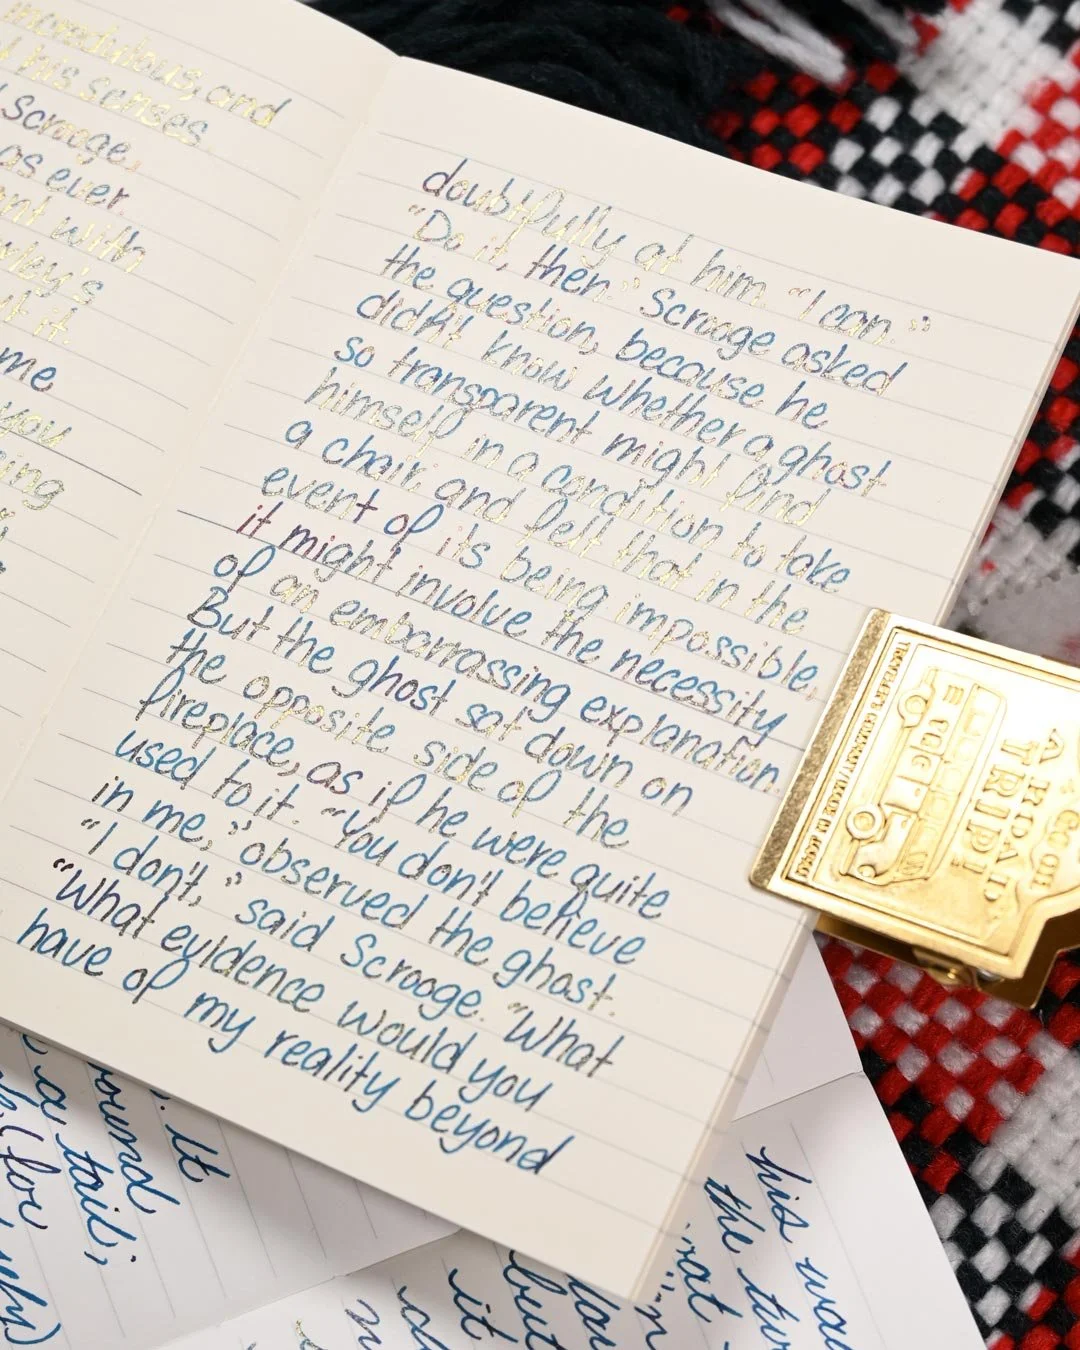 incredulous, and
his senses
Scrooge,
as ever.
with
it.
me
you
doubtfully at him. "I can."
"Do it, then." Scrooge asked
the question, because he
didn't know whether a ghost
so transparent might find
himself in a condition to take
a chair; and felt that in the
event of its being impossible,
it might involve the necessity
of an embarrassing explanation.
But the ghost sat down on
the opposite side of the
fireplace, as if he were quite
used to it. "You don't believe
in me," observed the ghost.
"I don't," said Scrooge. "What
"What evidence would you
have of my reality beyond
TRAVELER'S COMPANY MADE IN JAPAN
GO ON
A ROAD
TRIP!
It
ound
a tail;
for
it
but
his wa
the tw